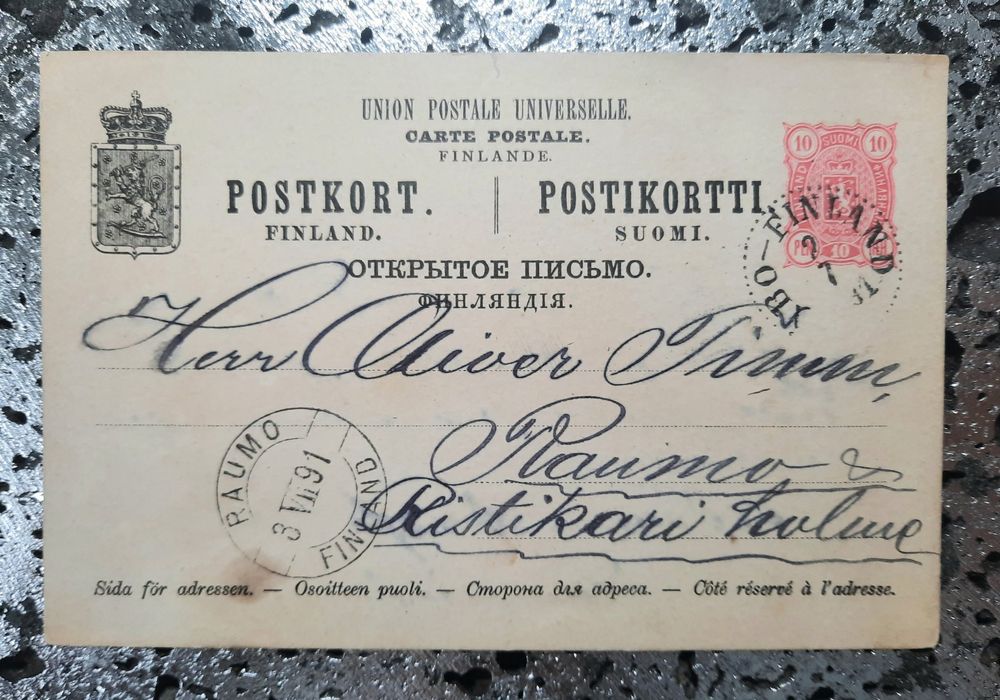 UNION POSTALE UNIVERSELLE.
CARTE POSTALE.
FINLANDE.
POSTKORT. POSTIKORTTI.
FINLAND. SUOMI.
ОТКРЫТОЕ ПИСЬМО.
ФИНЛЯНДІЯ.
10 SUOMI 10
10
ÅBO–FINLAND
2
7
91
Herr Oliver Timm,
Raumo &
Ristikari holme
RAUMO
3 VII 91
FINLAND
Sida för adressen. — Osoitteen puoli. — Сторона для адреса. — Côté réservé à l'adresse.